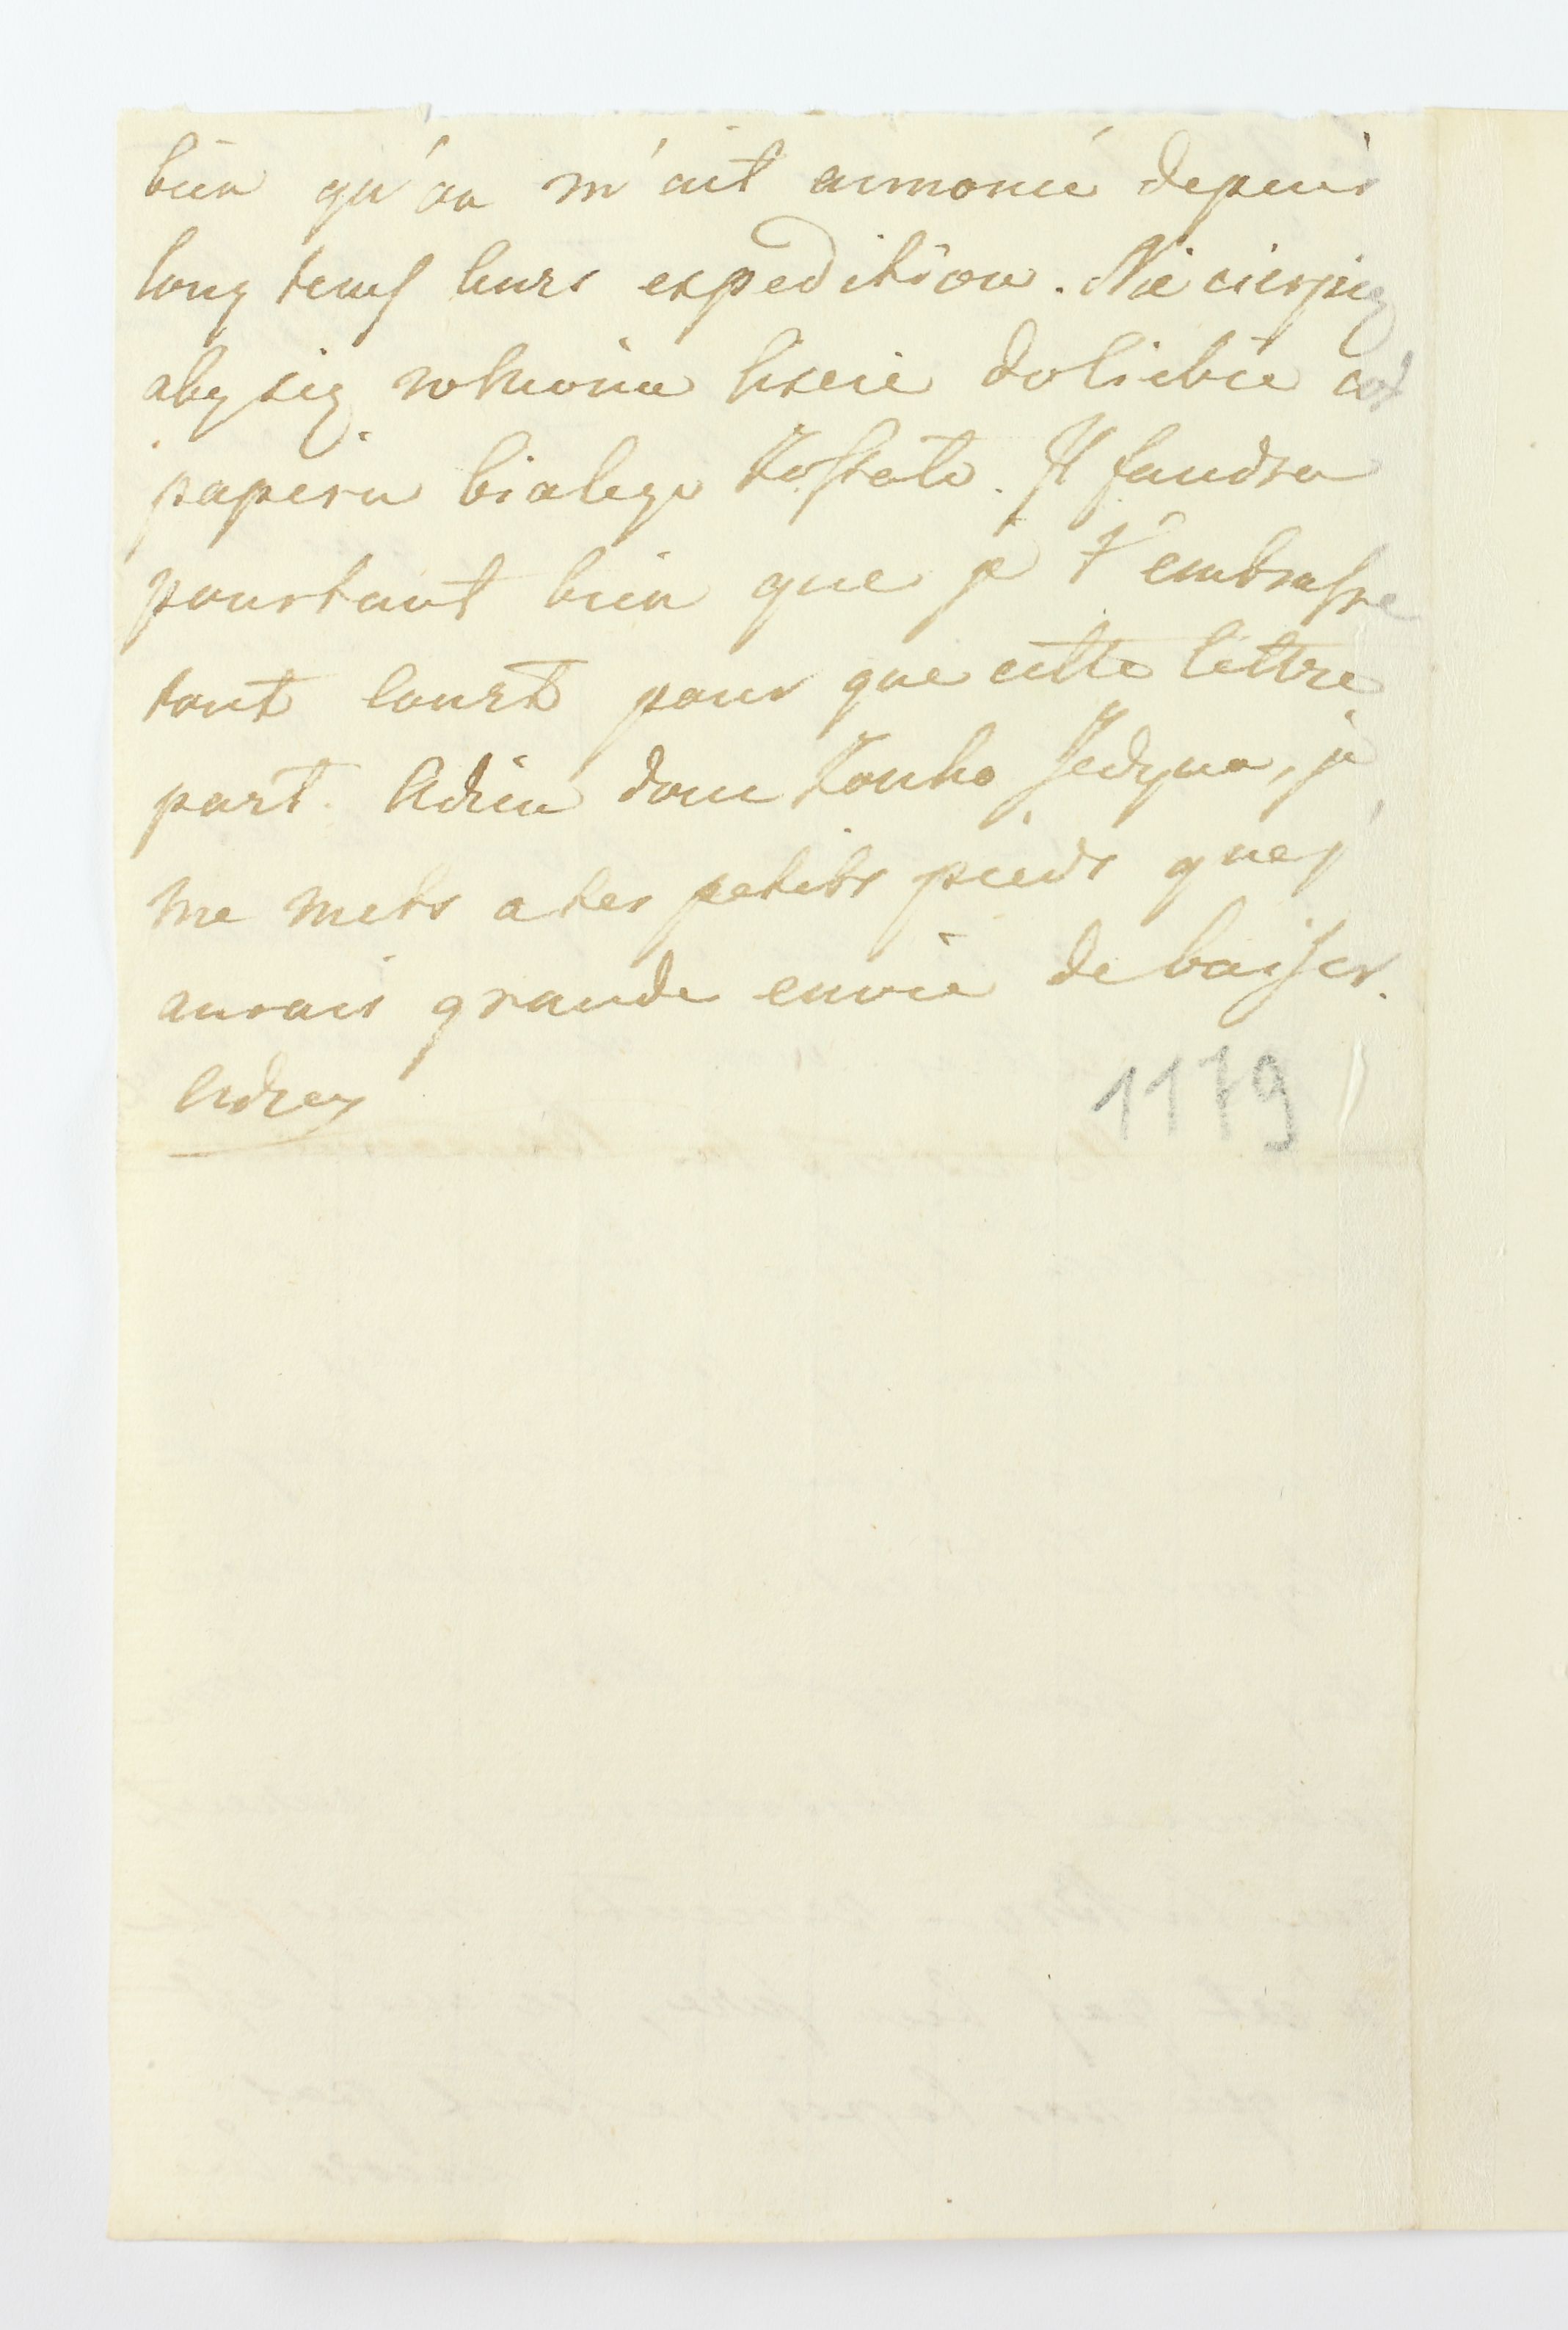 bien qu'on m'ait annoncé depuis
long tems leurs expedition. Nie cierpię
aby się w liście do Ciebie coś
papieru bialego zostało. Il faudra
pourtant bien que je t'embrasse
tout court pour que cette lettre
part. Adieu donc Zonko Jedyna, je
me mets a tes petits pieds que j'
aurais grande envie de baiser.
1179